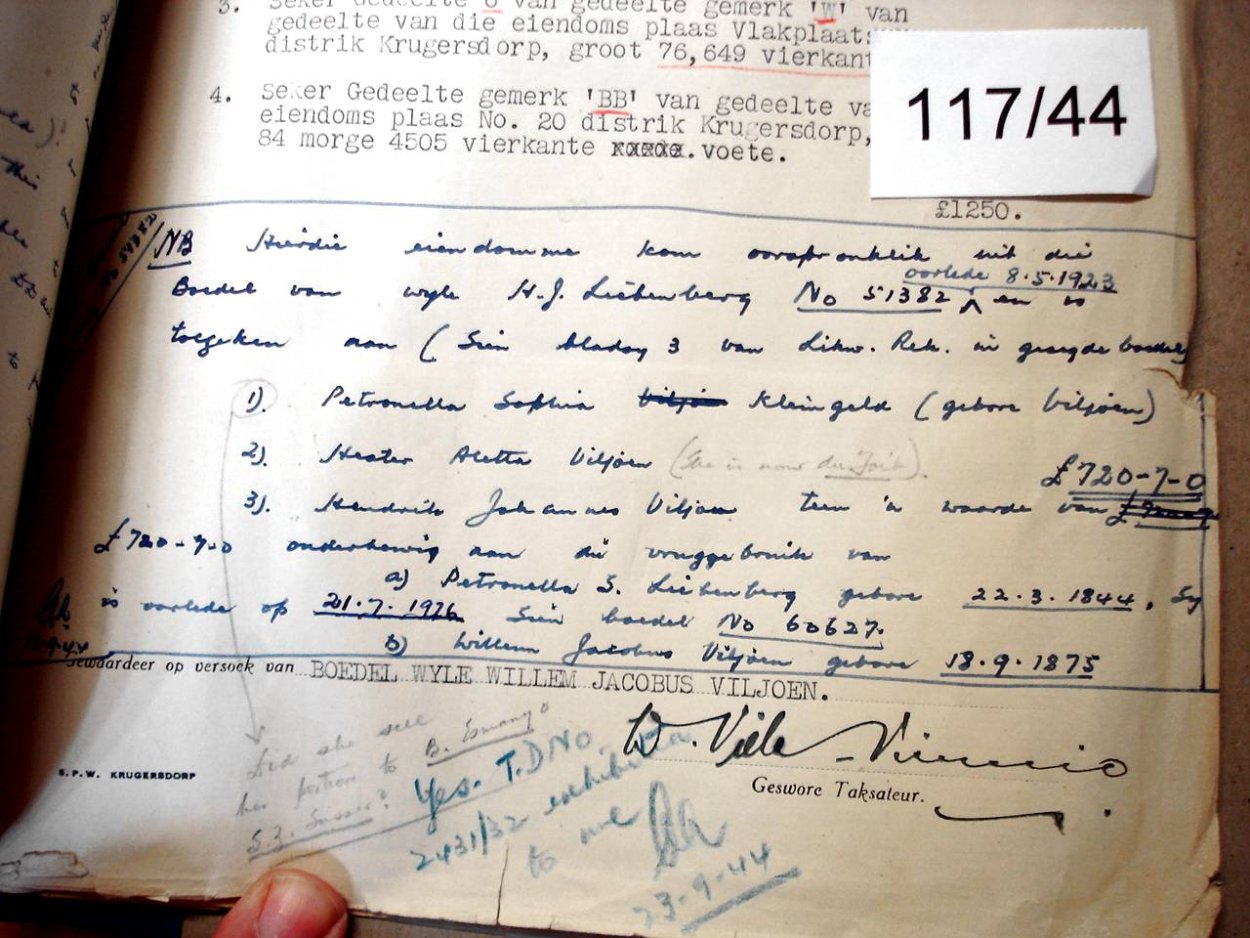 3. Seker Gedeelte van gedeelte gemerk 'W' van
gedeelte van die eiendoms plaas
distrik Krugersdorp, groot 76,649 vierkant
117/44
4. Seker Gedeelte gemerk 'BB' van gedeelte
eiendoms plaas No. 20 distrik Krugersdorp,
84 morge 4505 vierkante voete.
£1250.
NB Hierdie eiendomme kom oorspronklik uit die
oorlede 8.5.1923
Boedel van wyle H.J. Liebenberg No 51382 en is
toegeken aan (Sien bladsy 3 van Likw. Rek. in gesegde boedel)
1). Petronella Sophia Viljoen Kleingeld (gebore Viljoen)
2). Hester Aletta Viljoen (She is now du Toit).
£720-7-0
3). Hendrik Johannes Viljoen teen 'n waarde van
£720-7-0 onderhewig aan die vruggebruik van
a) Petronella S. Liebenberg gebore 22.3.1844, Sy
is oorlede op 21.7.1926 Sien boedel No 60627.
b) Willem Jacobus Viljoen gebore 18.9.1875
Gewaardeer op versoek van BOEDEL WYLE WILLEM JACOBUS VILJOEN.
Did she sell
her portion to B.
Yes. T.D No.
2431/32 exhibited
to me
23-9-44
Geswore Taksateur.
S.P.W. KRUGERSDORP